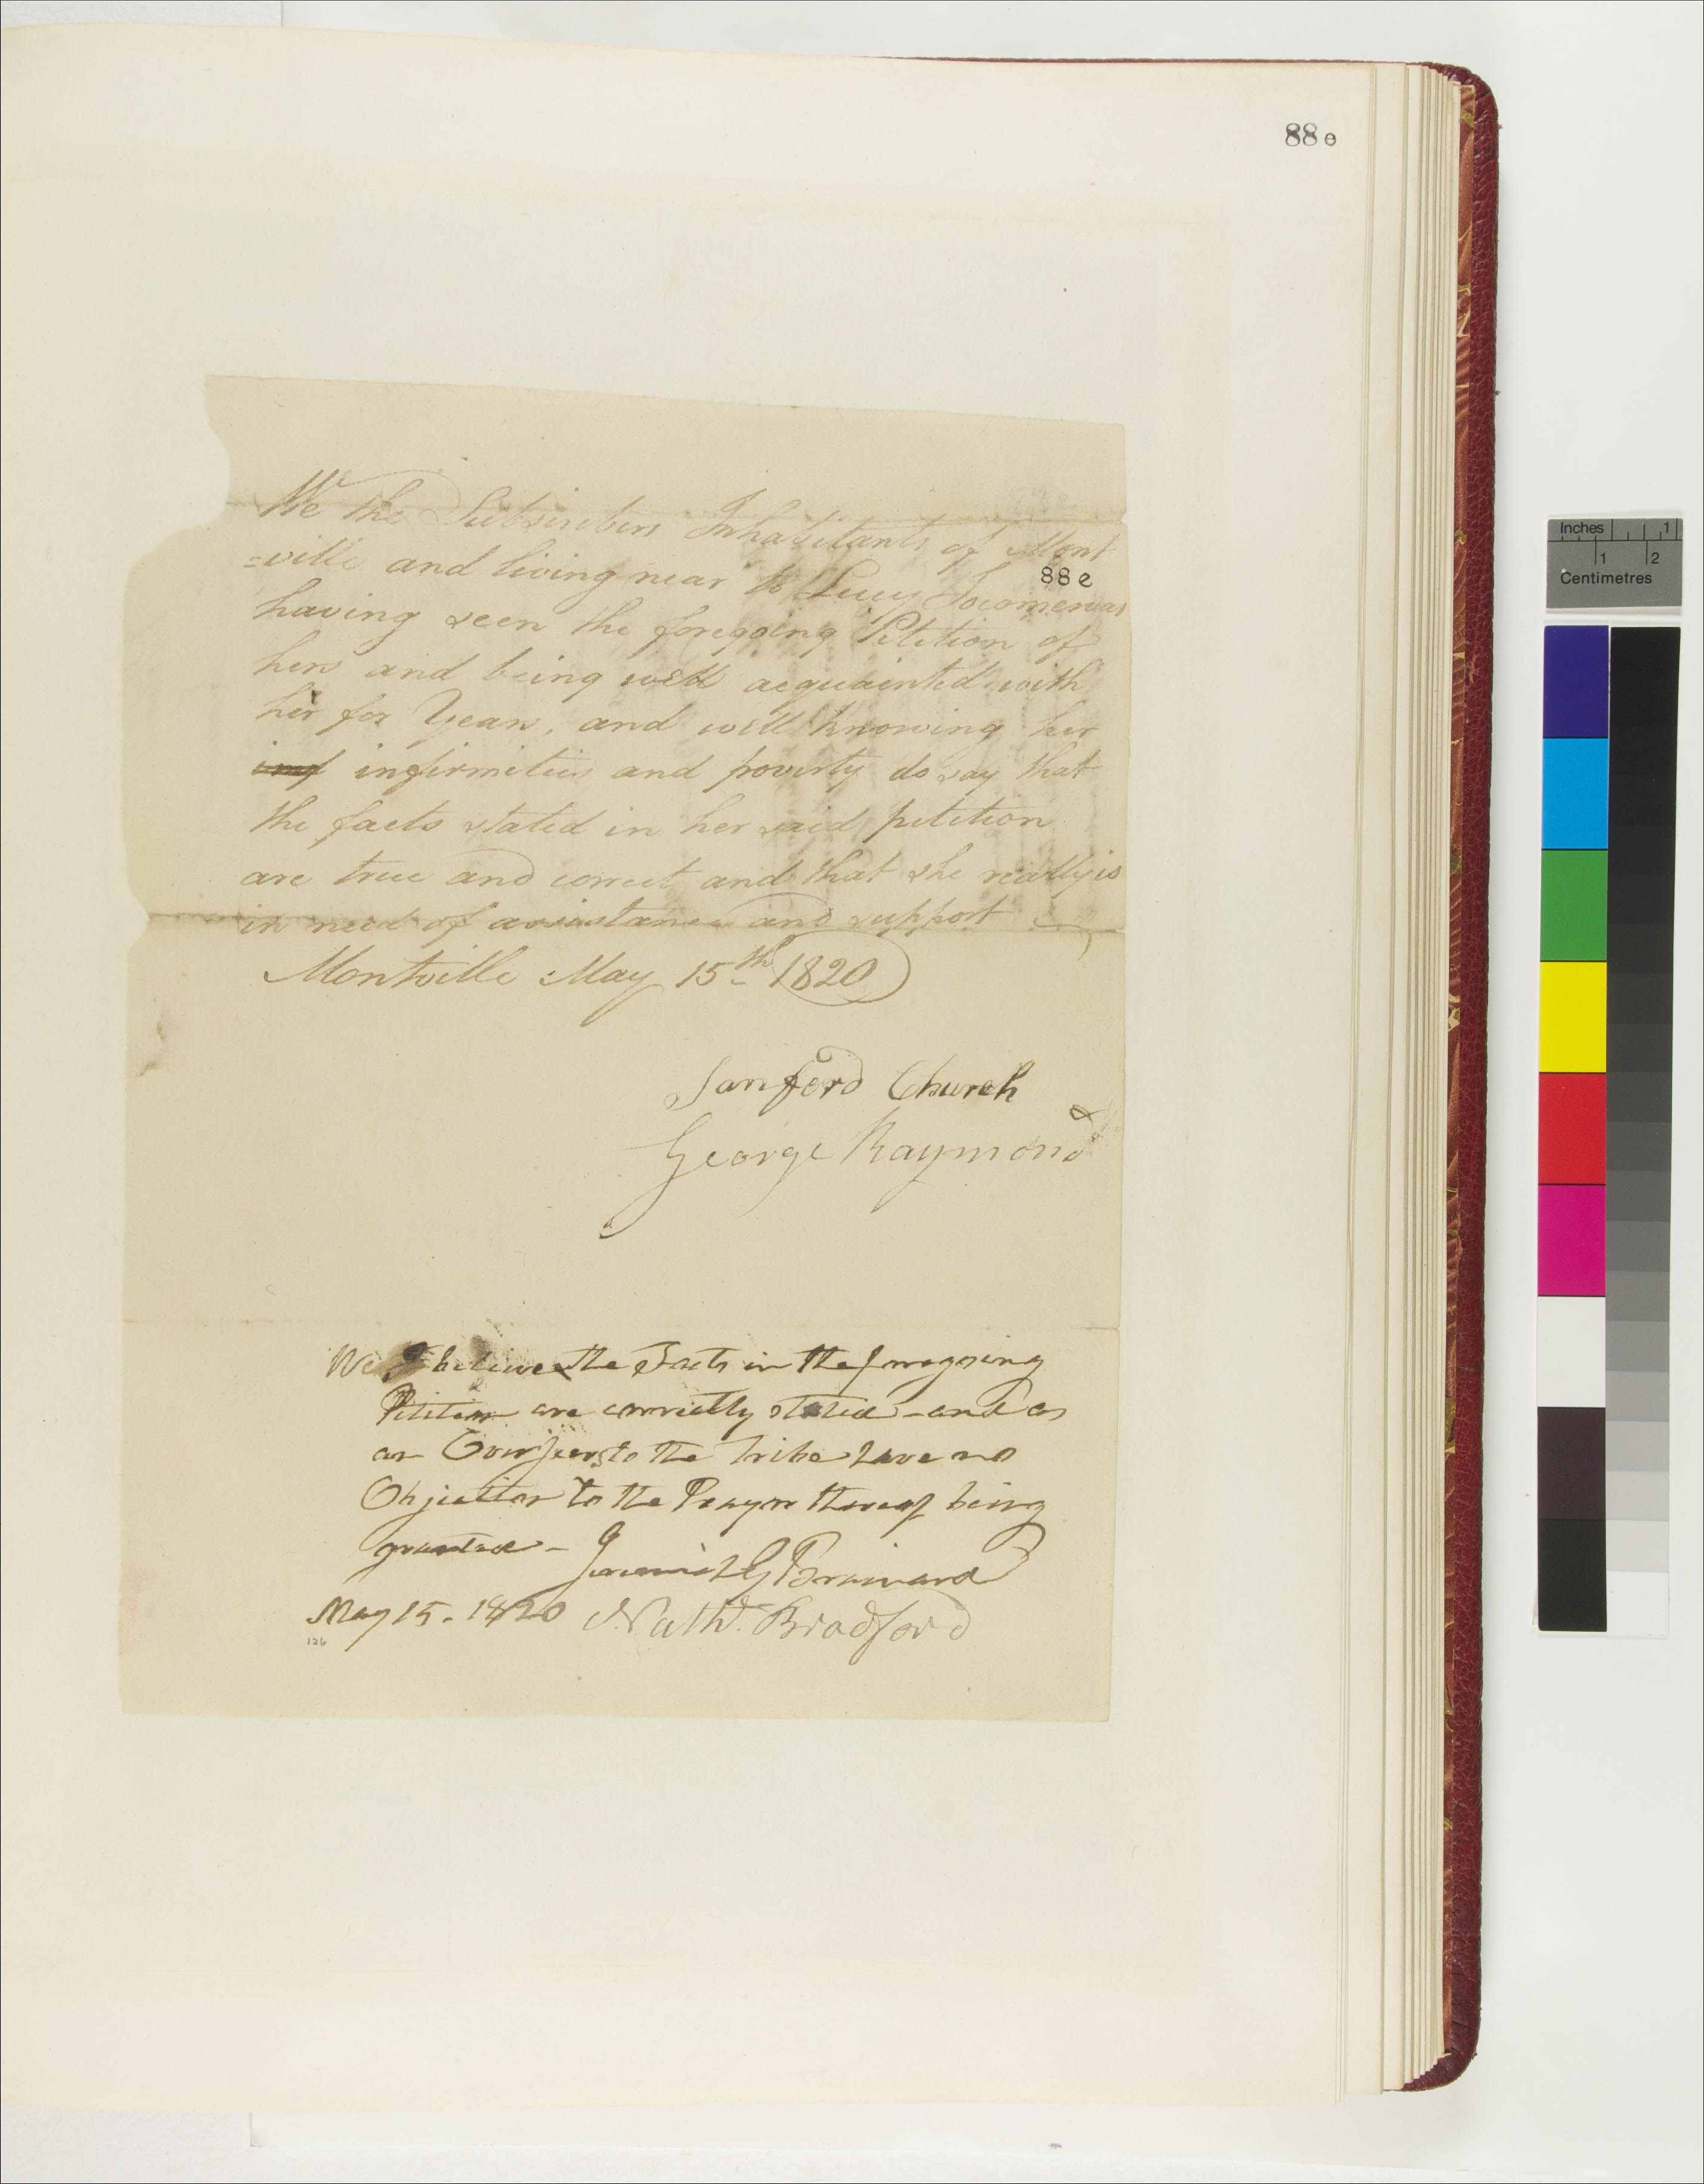 88e
We the Subscribers Inhabitants of Mont
=ville and living near to Lucy
88e
having seen the foregoing Petition of
hers and being well acquainted with
her for Years, and well knowing her
inf infirmities and poverty do say that
the facts stated in her said petition
are true and correct and that she really is
in need of assistance and support
Montville May 15th 1820
Sanford Church
George Raymond
We believe the Facts in the foregoing
Petition are correctly stated - and as
an Overseers to the Tribe have no
Objection to the Prayer thereof being
granted - Jeremiah G Brainard
May 15. 1820 Nathl. Bradford
126
Inches 1
1 2
Centimetres